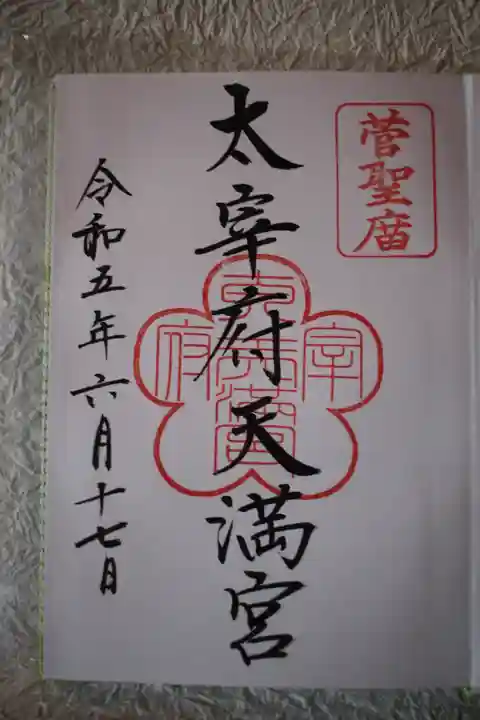 菅聖庿
太宰府天満宮
令和五年六月十七日